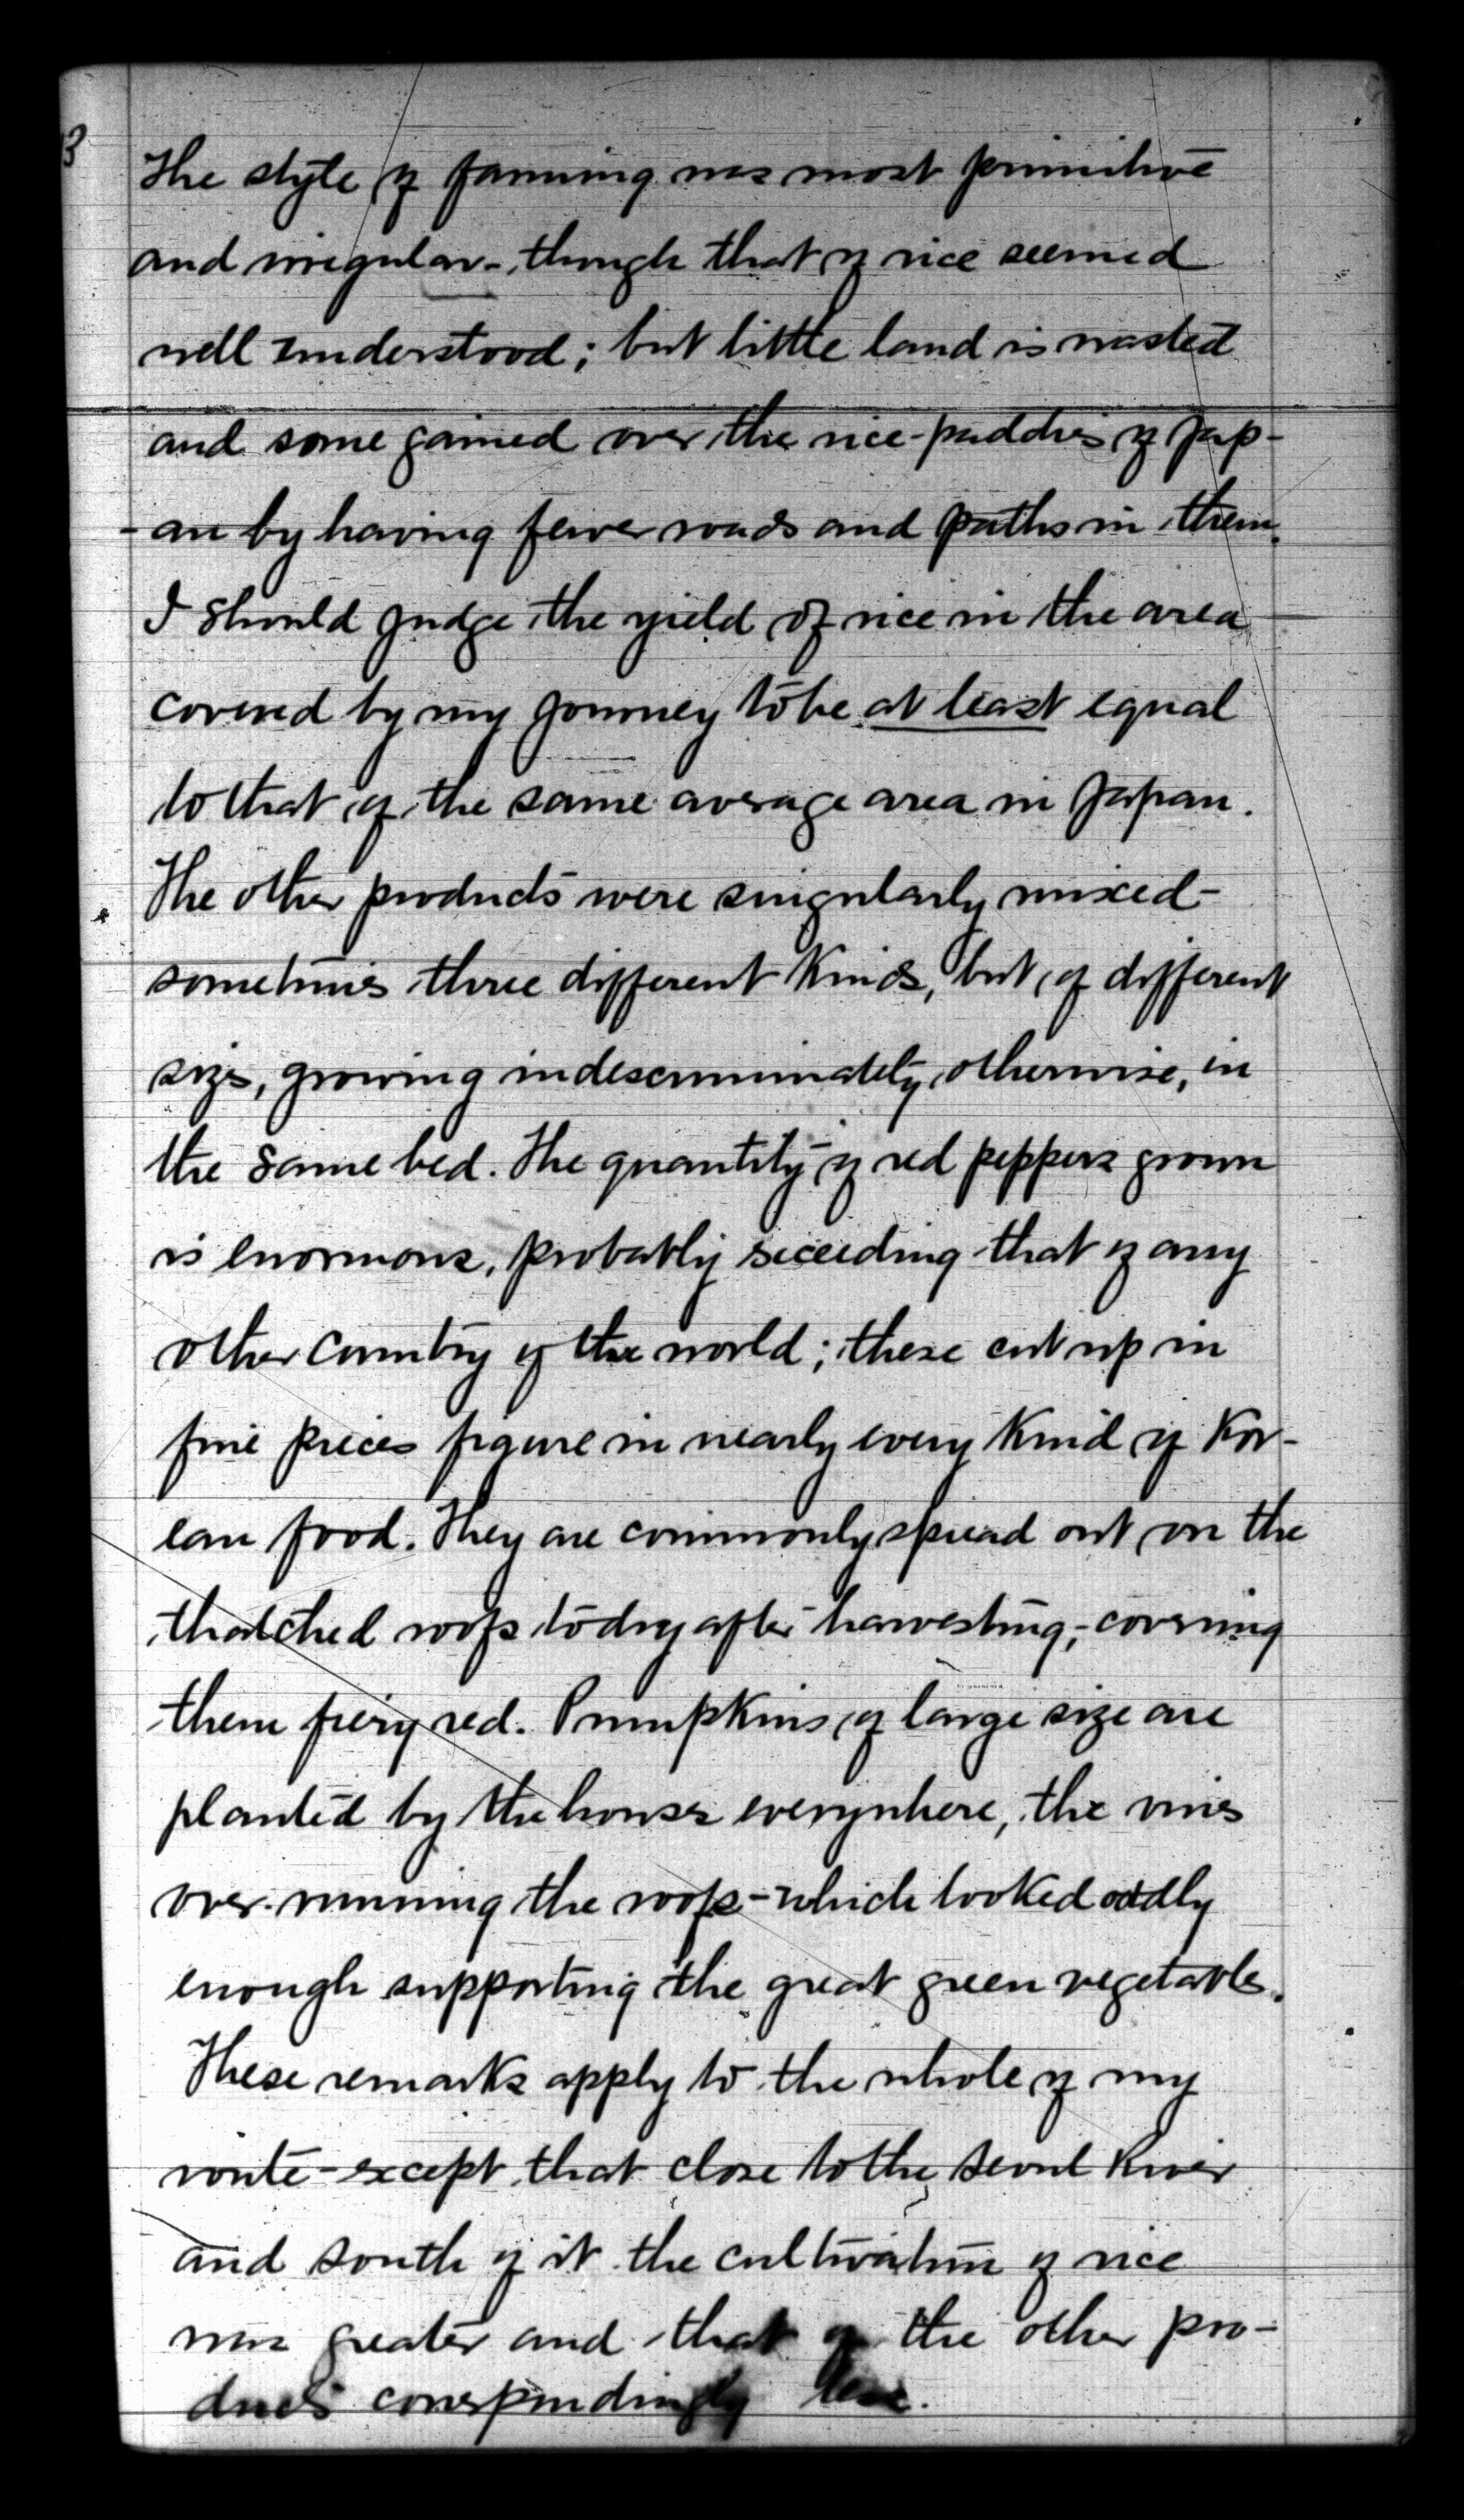 3
The style of farming was most primitive
and irregular-, though that of rice seemed
well understood; but little land is wasted
and some gained over the rice-paddies of Jap-
-an by having fewer roads and paths in them.
I should judge the yield of rice in the area
covered by my journey to be at least equal
to that of the same average area in Japan.
The other products were singularly mixed-
sometimes three different kinds, but of different
sizes, growing indescriminately, otherwise, in
the same bed. The quantity of red peppers grown
is enormous, probably exceeding that of any
other country of the world; these cut up in
fine pieces figure in nearly every kind of Kor-
ean food. They are commonly spread out on the
thatched roofs to dry after harvesting,-covering
them fiery red. Pumpkins of large size are
planted by the houses everywhere, the vines
over-running the roofs-which looked oddly
enough supporting the great green vegetables.
These remarks apply to the whole of my
route-except that close to the Seoul River
and south of it the cultivation of rice
was greater and that of the other pro-
ducts correspondingly less.